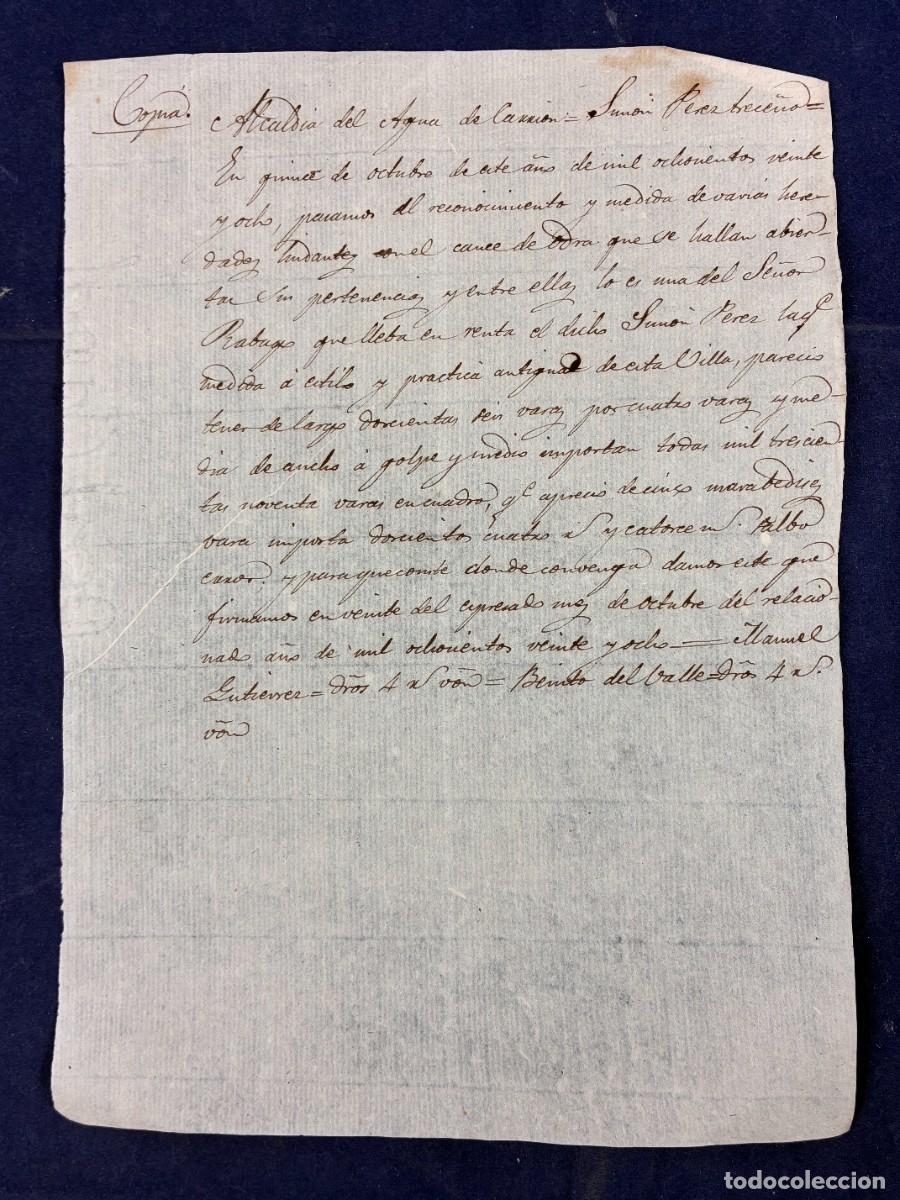 Copia.
Alcaldia del Agua de Carrion = Simón Perez treceño =
En quince de octubre de este año de mil ochocientos veinte
y ocho, pasamos al reconocimiento y medida de varias here-
dades lindantes con el cauce de Odra que se hallan abier-
tas sin pertenencias y entre ellas lo es una del Señor
Rabago que lleba en renta el dicho Simón Perez la q.e
medida á estilo y practica antigua de esta Villa, parecio
tener de largo dorcientas seis varas por cuatro varas y me-
dia de ancho á golpe y medio importan todas mil trescien-
tas noventa varas en cuadro, q.e aprecio de cinco marabedises
vara importa dorcientos cuatro r.s y catorce m.s salbo
error. y para que conste donde convenga damos este que
firmamos en veinte del espresado mes de octubre del relacio-
nado año de mil ochocientos veinte y ocho = Manuel
Gutierrez = dros 4 r.s von = Benito del Valle = dros 4 r.s
von
todocoleccion